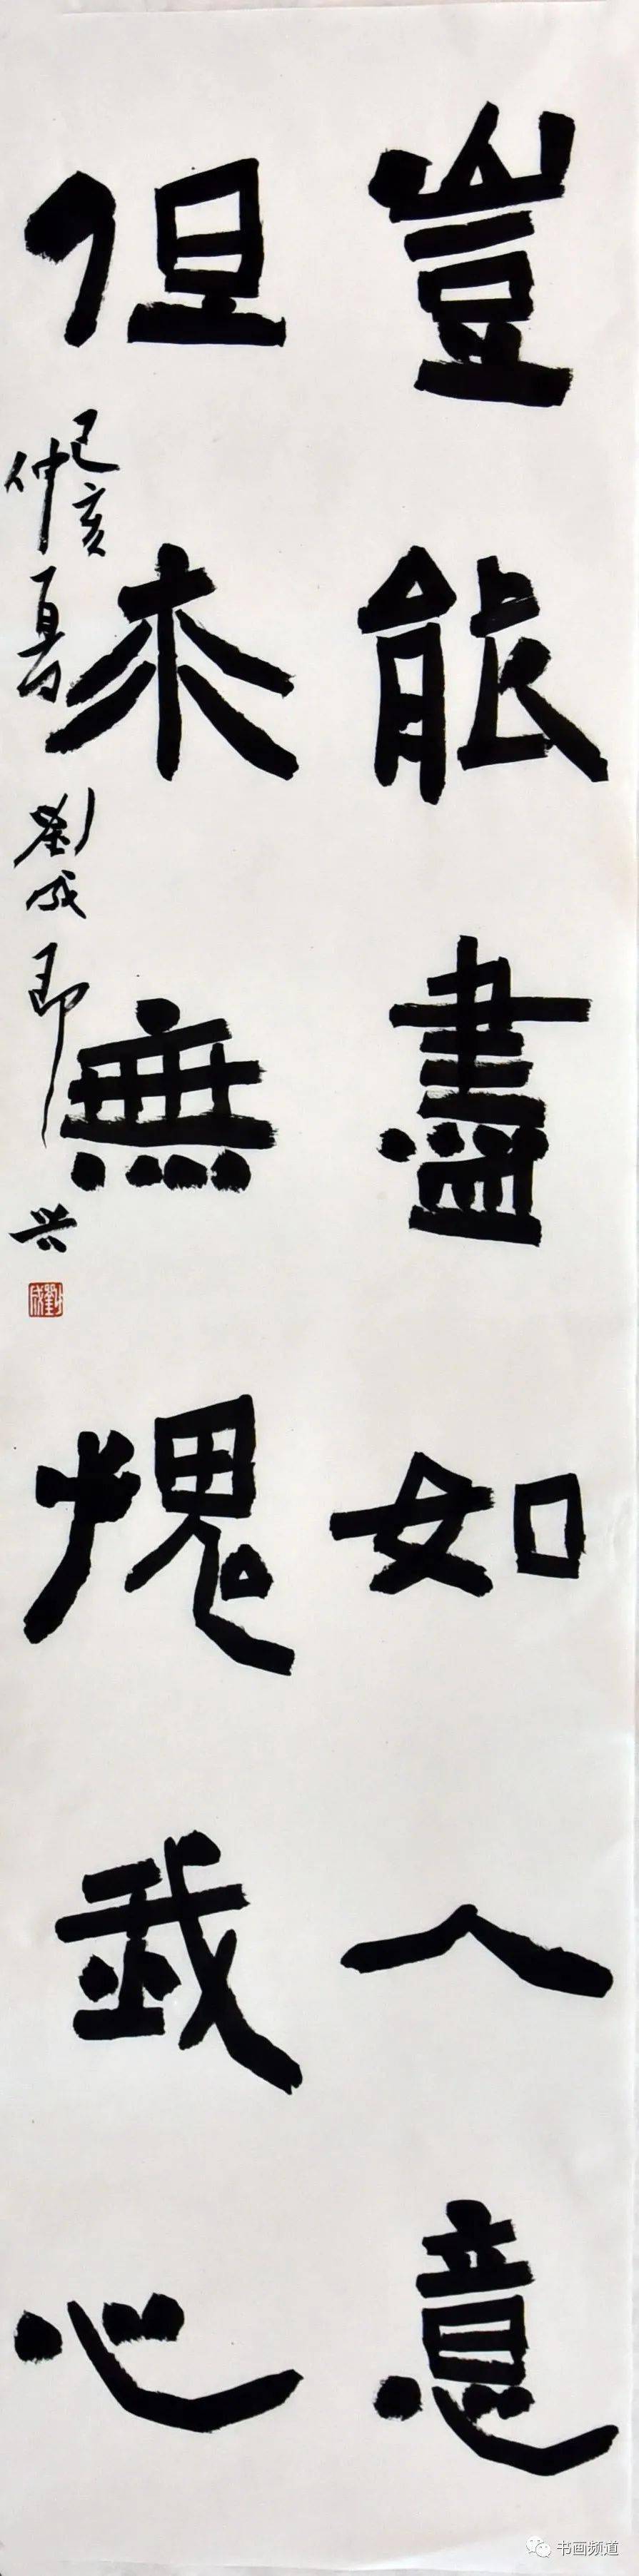 豈能盡如人意
但求無愧我心
己亥仲夏劉成即兴
书画频道